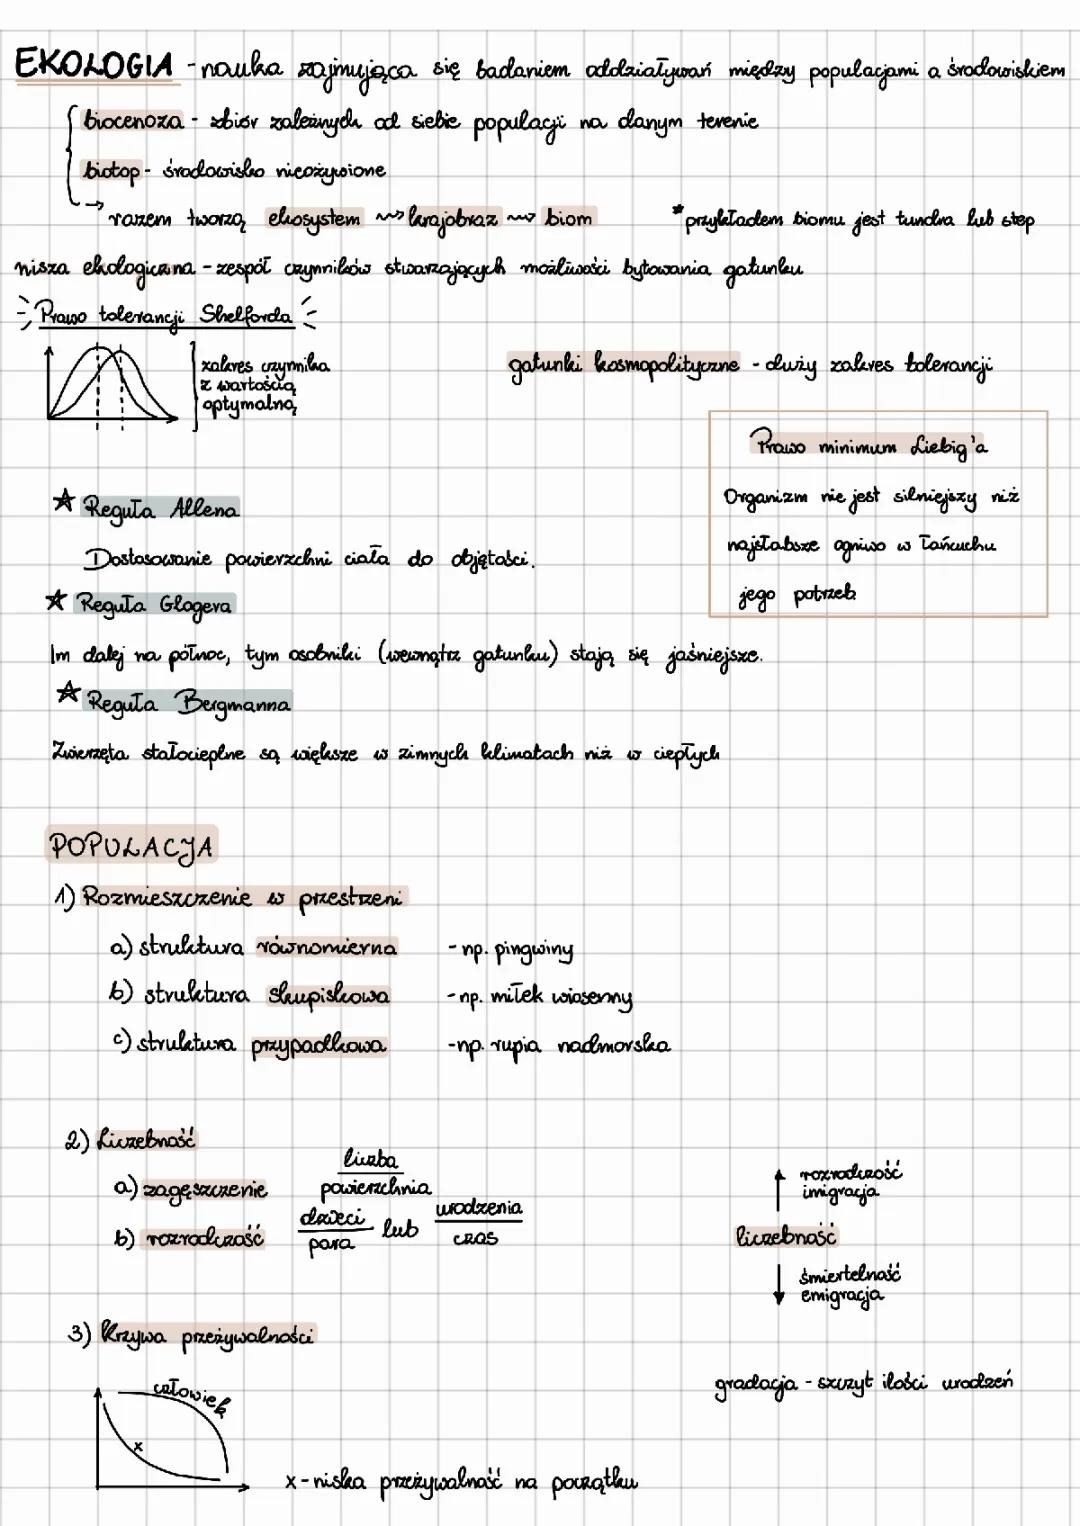 EKOLOGIA - nauka zajmująca się badaniem oddziaływań między populacjami a środowiskiem
biocenoza - zbiór zależnych od siebie populacji na danym terenie
biotop - środowisko nieożywione
razem tworzą ekosystem krajobraz biom
*przykładem biomu jest tundra lub step
nisza ekologiczna - zespół czynników stwarzających możliwości bytowania gatunku
Prawo tolerancji Shelforda
zakres czynnika
z wartością
optymalną
gatunki kosmopolityczne - duży zakres tolerancji
Prawo minimum Liebig'a
Organizm nie jest silniejszy niż
najsłabsze ogniwo w łańcuchu
jego potrzeb
Reguła Allena
Dostosowanie powierzchni ciała do objętości.
Reguła Glogera
Im dalej na północ, tym osobniki (wewnątrz gatunku) stają się jaśniejsze.
Reguła Bergmanna
Zwierzęta stałocieplne są większe w zimnych klimatach niż w ciepłych
POPULACJA
1) Rozmieszczenie w przestrzeni
a) struktura równomierna - np. pingwiny
b) struktura skupiskowa - np. miłek wiosenny
c) struktura przypadkowa - np. rupia nadmorska
2) Liczebność
a) zagęszczenie liczba
powierzchnia
b) rozrodczość dzieci lub urodzenia
para czas
rozrodczość
imigracja
liczebność
śmiertelność
emigracja
3) Krzywa przeżywalności
człowiek
x
x - niska przeżywalność na początku
gradacja - szczyt ilości urodzeń